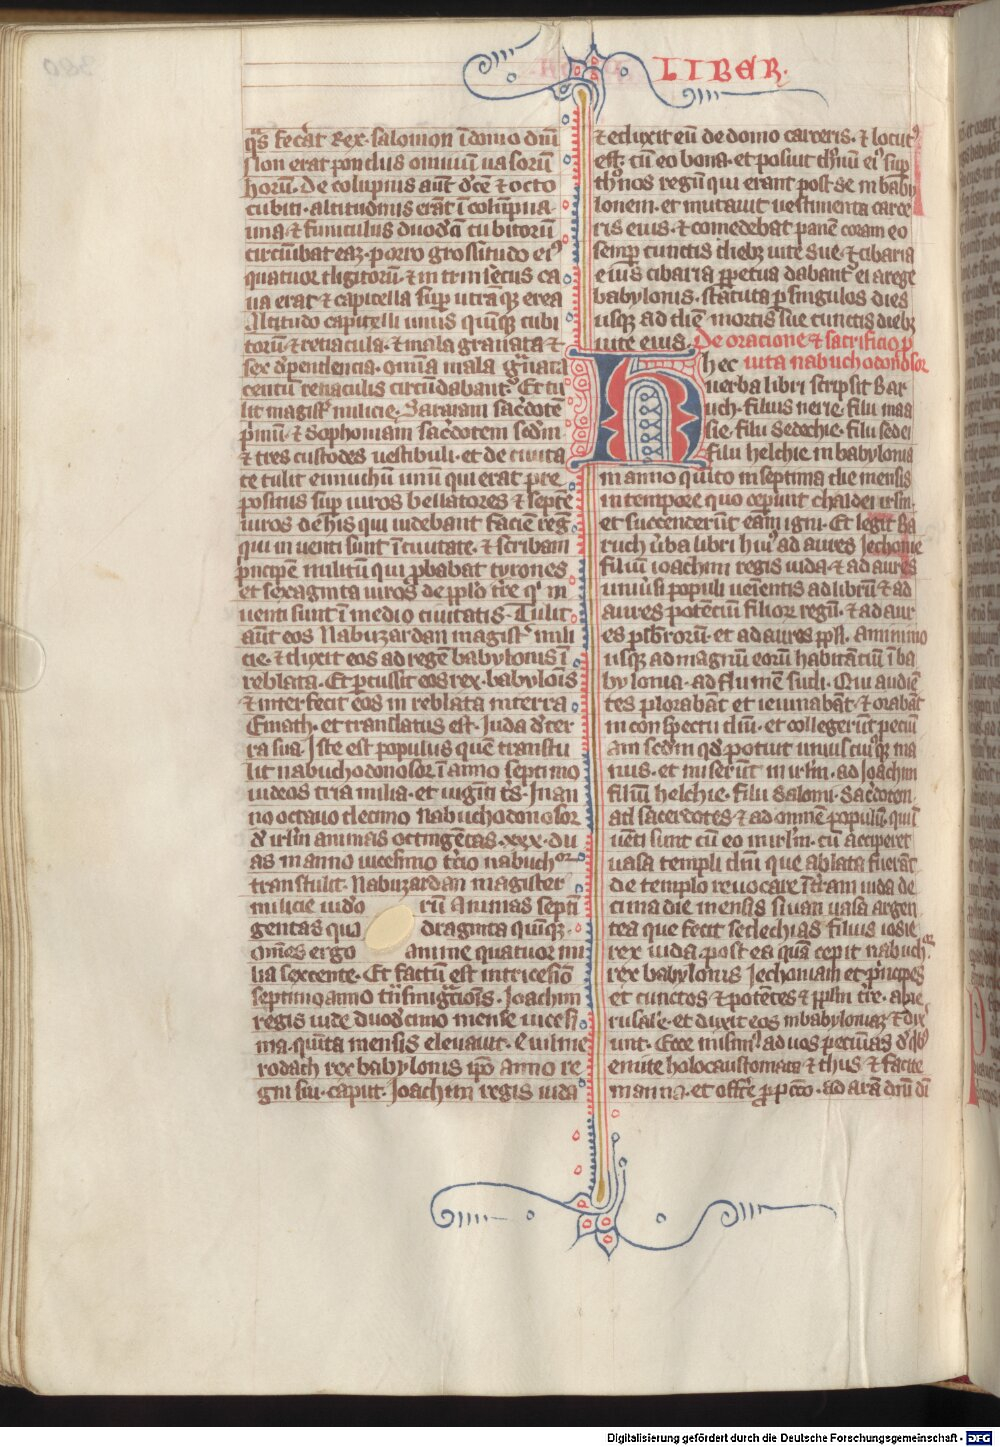 LIBER.
q̄s fecāt Rex. salomon ī domo dn̄i
Non erat pondus omniū uasorū
horū. De colūpnis aūt dēcē ⁊ octo
cubiti. altitudinis erāt ī colūpna
una ⁊ funiculus duodeci cubitorū
circūibat eaꝫ. porro grossitudo ei9
quatuor digitorū. ⁊ intrinsecus ca
ua erat ⁊ capitella sup̄ utrāqꝫ erea
Altitudo capitelli unius quīqꝫ cubi
torū ⁊ retiacula. ⁊ mala granata ⁊
sex dependencia. omīa mala gͣnata
centū retiaculis circūdabant. Et tu
lit magist̄ milicie. Saraiam sacͥdotē
pͥmū. ⁊ Sophoniam sacͥdotem scd̄m
⁊ tres custodes uestibuli. et de ciuita
te tulit eunuchū unū qui erat pre
positus sup̄ uiros bellatores ⁊ septē
uiros de his qui uidebant faciē reḡ
qui inuenti sunt ī ciuitate. ⁊ scribam
pͥncipē militū qui ꝓbabat tyrones
et sexaginta uiros de ppl̄o tr̄e qͥ in
uenti sunt ī medio ciuitatis. Tulit
aūt eos Nabuzardan magist̄ mili
cie. ⁊ duxit eos ad regē babylonis ī
reblata. Et ꝑcussit eos rex. babylois
⁊ interfecit eos in reblata in terra
Emath. et translatus est. Juda de ter
ra sua. Iste est populus quē transtu
lit nabuchodonosor ī anno septimo
iudeos tria milia. et uiginti tͥs. In an
no octauo decimo nabuchodonosor
de irl̄m animas octingētas. xxx. du
as in anno uicesimo tͥcio nabuchor
transtulit. Nabuzardan magister
milicie iudeo rū Animas septi
gentas qua draginta quīqꝫ.
Om̄es ergo anime quatuor mi
lia sexcente. Et factū est in tricesio
septimo anno tn̄smigͣcionis. Joachim
regis iude duodecimo mense uicesi
ma. quīta mensis eleuauit. Euilme
rodach rex babylonis ip̄o Anno re
gni sui. caput. Joachim regis iuda
⁊ eduxit eū de domo carceris. ⁊ locut9
est cū eo bona. et posiut thͦnū ei9 sup̄
thͦnos regū qui erant post se in baby
lonem. et mutauit uestimenta carce
ris eius. ⁊ comedebat panē coram eo
semp̄ cunctis diebꝫ uite sue. ⁊ cibaria
eius cibaria ꝑpetua dabant̄ ei a rege
babylonis. statuta ꝑ singulos dies
usqꝫ ad diē mortis sue cunctis diebꝫ
uite eius. De oracione ⁊ sacrificio p̄
hec uita nabuchodonosor
uerba libri scripsit Bar
uch. filius nerie. filii maa
sie. filii Sedechie. filii sedei
filii helchie in babylonia
in anno quīto in septima die mensis
in tempore quo ceperunt chaldei irl̄m.
et succenderūt eam igni. Et legit Ba
ruch ūba libri hui9 ad aures Jechonie
filiū ioachim regis iuda ⁊ ad aures
uniūsi populi ueientis ad librū ⁊ ad
aures potēciū filior regū. ⁊ ad aur
es pſbrorū. et ad aures ppl̄i. A minimo
usqꝫ ad magnū eorū habitāciū ī ba
bylonia. ad flumē sudi. Qui audiē
tes plorabāt et ieiunabāt ⁊ orabāt
in conspectu dn̄i. et collegerūt pecuni
am scd̄m qd̄ potuit uniuscui9qꝫ ma
nus. et miserūt in irl̄m. ad Joachim
filiū helchie. filii Salomi. Sacͥdotem.
atl sacerdotes ⁊ ad omnē populū. quī
uēti sunt cū eo in irl̄m. cū acciperet
uasa templi dn̄i que ablata fuerāt
de templo reuocare ī tr̄am iuda de
cima die mensis siuan uasa argen
tea que fecit sedechias filius iosie
rex iuda. post ea quā cepit nabuchor
rex babylonis Jechoniam et pͥncipes
et cunctos ⁊ potētes ⁊ ppl̄m tr̄e. ab ie
rusale. et duxit eos in babyloniaꝫ. ⁊ dix
unt. Ecce misim9 ad uos pecunias de qͥb9
emite holocaustomata ⁊ thus ⁊ facite
manna. et offr̄e ꝓ pcc̄o. ad arā dn̄i di
Digitalisierung gefördert durch die Deutsche Forschungsgemeinschaft - DFG